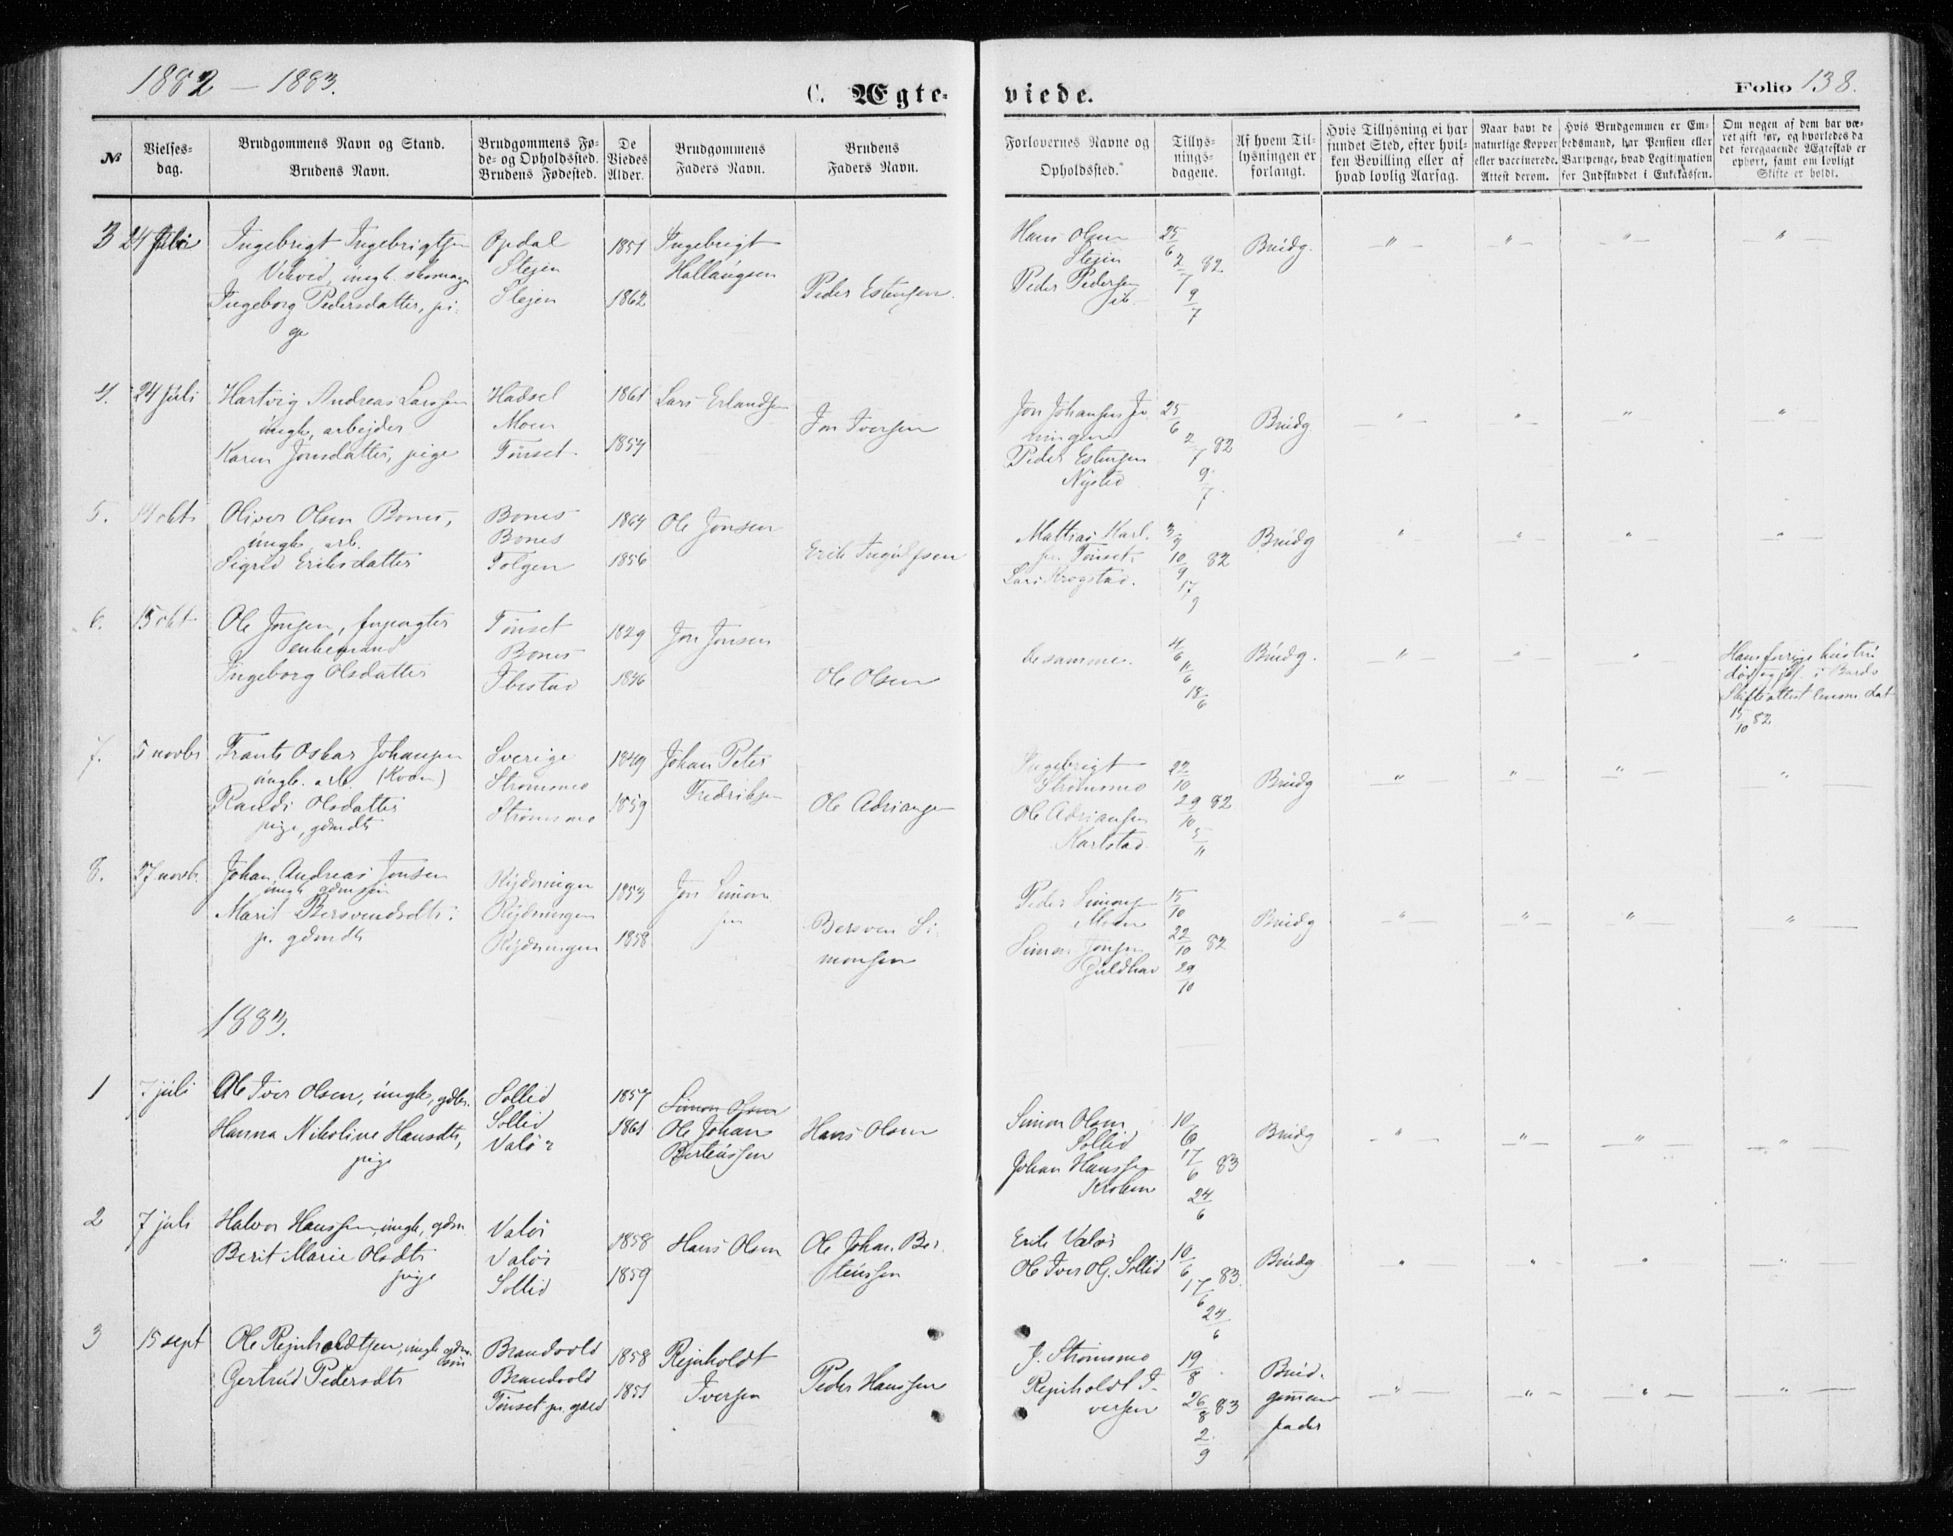 1882 – 1883.
C. Ægte-
viede.
Folio 138.
№
Vielses-
dag.
Brudgommens Navn og Stand.
Brudens Navn.
Brudgommens Fø-
de- og Opholdssted.
Brudens Fødested.
De
Viedes
Alder.
Brudgommens
Faders Navn.
Brudens
Faders Navn.
Forlovernes Navne og
Opholdssted.
Tillys-
nings-
dagene.
Af hvem Til-
lysningen er
forlangt.
Hvis Tillysning ei har
fundet Sted, efter hvil-
ken Bevilling eller af
hvad lovlig Aarsag.
Naar havt de
naturlige Kopper
eller vaccinerede.
Attest derom.
Hvis Brudgommen er Em-
bedsmand, har Pension eller
Vartpenge, hvad Legitimation
for Indskuddet i Enkekassen.
Om nogen af dem har væ-
ret gift før, og hvorledes da
det foregaaende Ægteskab er
ophørt, samt om lovligt
Skifte er holdt.
3 24 juli Ingebrigt Ingebrigtsen Opdal 1851 Ingebrigt
ungk. skomager Stejen Hallaugsen
Ingeborg Pedersdatter, pi- Stejen 1862 Peder Estensen
ge
Hans Olsen 25/6 Brudg.
Stejen 2/7 82
Peder Pedersen 9/7
4. 24 juli Hartvig Andreas Larssen Hadsel 1861 Lars Erlandsen
ungk, arbejder Moen Jon Iversen
Karen Jonsdatter, pige Tønset 1854
Jon Johansen 25/6 Brudg.
2/7 82
Peder Estensen
Nysted 9/7
5. 14 okt Oliver Olsen Bones, Bones 1864 Ole Jonsen
ungk. arb. Bones
Sigrid Eriksdatter Tolgen 1856 Erik Ingulfsen
Mattias Karl- 3/9 Brudg
sen Tønset. 10/9 82
Lars Krogstad. 17/9
6. 15 okt Ole Jonsen, forpagter Tønset 1829 Jon Jonsen
enkemand Bones
Ingeborg Olsdatter Ibestad 1846 Ole Olsen
De samme. 4/6 11/6 18/6 Brudg.
Hans forrige hustru
død i Bardo
Skifteattest dat
15/10 82
7. 5 novbr Frants Oskar Johansen Sverige 1849 Johan Peter
ungk. arb (Kvæn) Strømsmo Fredriksen
Randi Olsdatter Strømsmo 1859 Ole Adriansen
pige, gdmdt
Ingebrigt 22/10 Brudg
Strømsmo 29/10 82
Ole Adriansen
Karlstad 5/11
8. 27 novb. Johan Andreas Jonsen Rydningen 1853 Jon Simon-
ungk gdmsøn Rydningen sen
Marit Bersvendsdtr: Rydningen 1858 Bersven Si-
p. gdmdt monsen
Peder Simonsen 15/10 Brudg
Moen 22/10 82
Simon Jonsen
29/10
1883.
1 7 juli Ole Iver Olsen, ungk, gdbr. Sollid 1857 Simon Olsen
Sollid
Hanna Nikoline Hansdtr, Valør 1861 Ole Johan Hans Olsen
pige Berteussen
Simon Olsen 10/6 Brudg
Sollid 17/6 83
Johan Hanssen
24/6
2 7 juli Halvor Hanssen, ungk, gdm Valør 1858 Hans Olsen Ole Johan Ber-
Berit Marie Olsdtr Valør teussen
pige Sollid 1859
Erik Valør
Ole Iver Ols. Sollid 10/6 17/6 83 24/6 Brudg
3 15 sept Ole Rejnholdtsen, ungk gdm- Brandvold 1858 Rejnholdt
søn Brandvold Iversen
Gertrud Pedersdtr Tønset 1851 Peder Hanssen
J. Strømsmo 19/8 Brud-
Rejnholdt I- 26/8 83 gommens
versen 2/9 fader